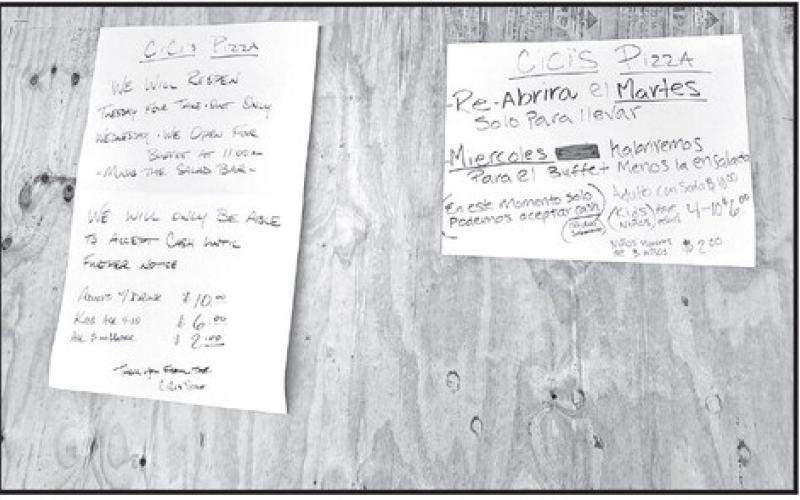 CiCi's Pizza
We Will Reopen
Tuesday for Take-Out Only
Wednesday - We Open For
Buffet at 11:00am
- Minus the Salad Bar -
We Will Only Be Able
to Accept Cash Until
Further Notice
Adults w/Drink $10.00
Kids Age 4-10 $6.00
Age 3 $2.00
Thank you From the
CiCi's
CiCi's Pizza
-Re-Abrira el Martes
Solo Para llevar
-Miercoles habriremos
Para el Buffet Menos la ensalada
En este Momento solo
Podemos aceptar cash
Adulto con Soda $10.00
(Kids) Age
Niños 4-10 $6.00
Niños
de 3 años $2.00